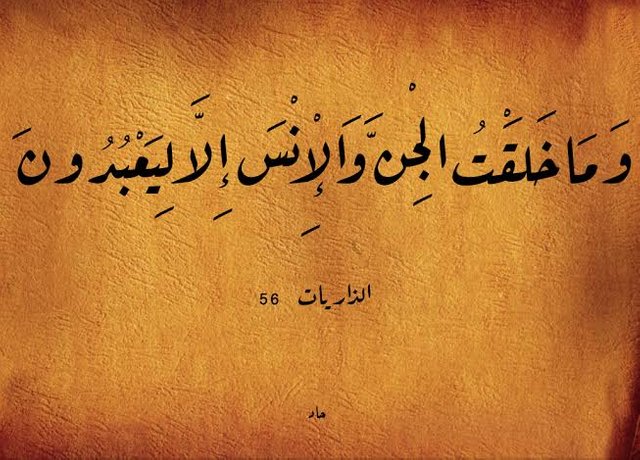 وَمَا خَلَقْتُ الْجِنَّ وَالْإِنْسَ إِلَّا لِيَعْبُدُونَ
الذاريات 56